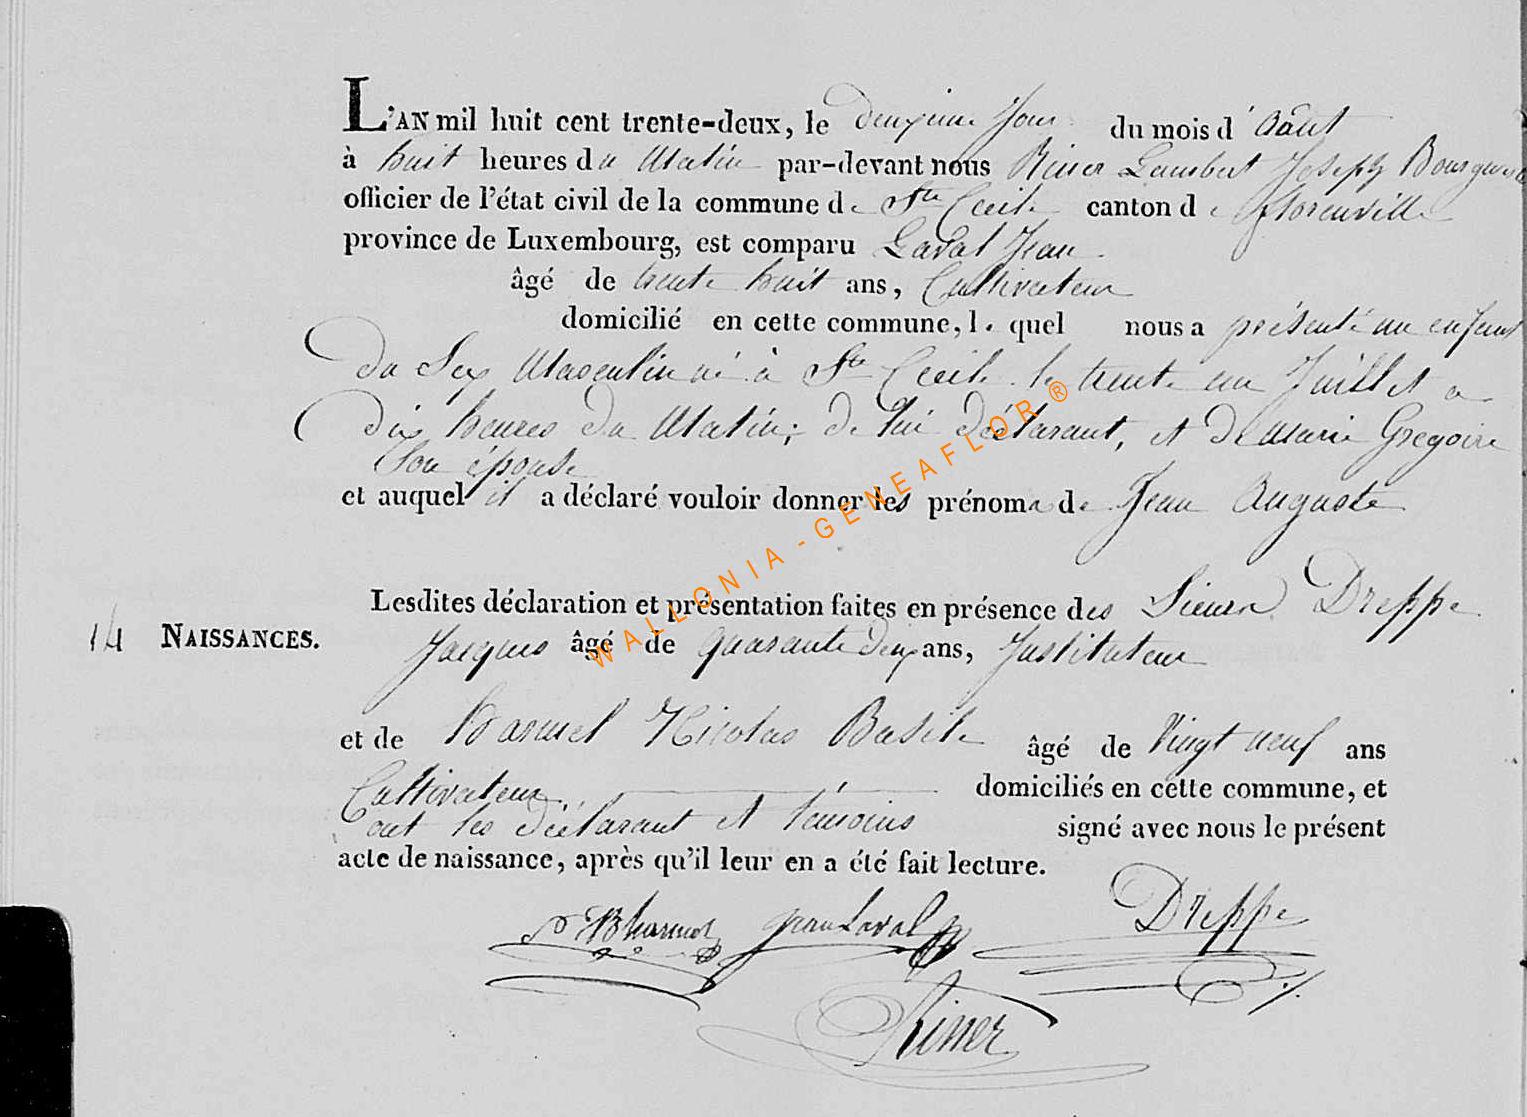 L'AN mil huit cent trente-deux, le deuxieme Jour du mois d'août
à huit heures du Matin par-devant nous Riner Lambert Joseph
officier de l'état civil de la commune de Ste Cecile canton de florenville
province de Luxembourg, est comparu Laval Jean
âgé de trente huit ans, Cultivateur
domicilié en cette commune, le quel nous a présenté un enfant
du Sex Masculin né à Ste Cecile le trente un Juillet a
dix heures du Matin; de lui déclarant, et de Marie Gregoire
Son épouse
et auquel il a déclaré vouloir donner les prénoms de Jean Auguste
Lesdites déclaration et présentation faites en présence des Sieurs Dreppe
14 NAISSANCES.
Jacques âgé de quarante deux ans, Instituteur
et de Nicolas Basile âgé de Vingt neuf ans
Cultivateur domiciliés en cette commune, et
ont les déclarant et témoins signé avec nous le présent
acte de naissance, après qu'il leur en a été fait lecture.
jean Laval Dreppe
Riner
WALLONIA - GENEAFLOR ®